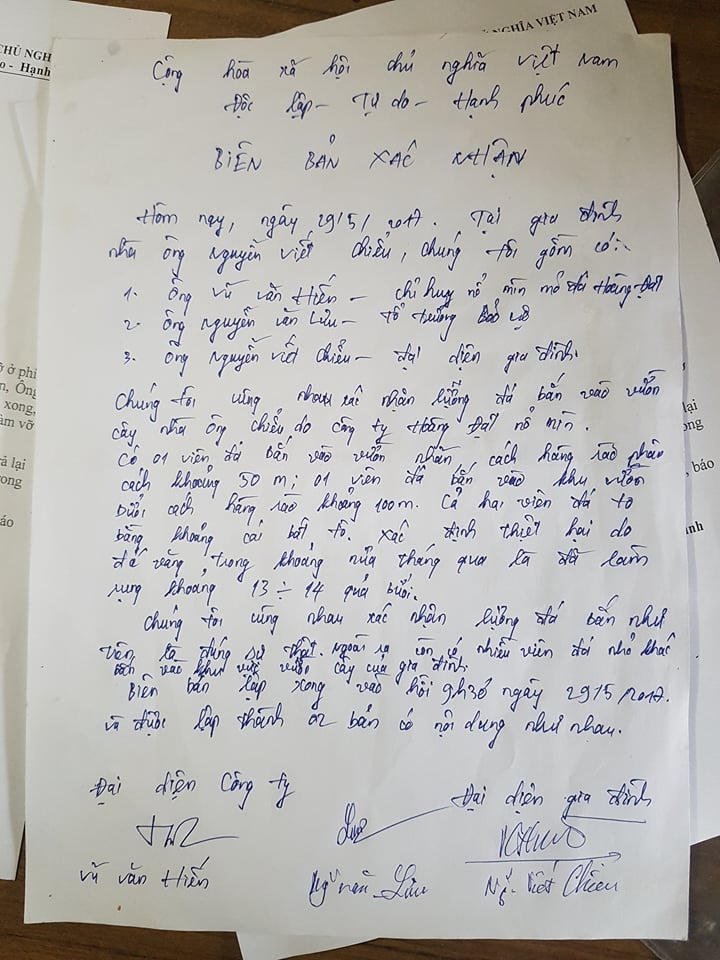 CHỦ NGH
o - Hạnh
HỦ NGHĨA VIỆT NAM
Cộng hòa xã hội chủ nghĩa Việt Nam
Độc lập - Tự do - Hạnh phúc
BIÊN BẢN XÁC NHẬN
Hôm nay, ngày 29/5/2017. Tại gia đình
nhà ông Nguyễn Viết Chiểu, chúng tôi gồm có:
1. Ông Vũ Văn Hiến - chỉ huy nổ mìn mỏ đá Hoàng Đạt
2. Ông Nguyễn Văn Lưu - tổ trưởng bảo vệ
3. Ông Nguyễn Viết Chiểu - đại diện gia đình.
Chúng tôi cùng nhau xác nhận lượng đá bắn vào vườn
cây nhà ông Chiểu do công ty Hoàng Đạt nổ mìn.
Có 01 viên đá bắn vào vườn nhãn, cách hàng rào phân
cách khoảng 50 m; 01 viên đá bắn vào khu vườn
bưởi cách hàng rào khoảng 100m. Cả hai viên đá to
bằng khoảng cái bát tô. Xác định thiệt hại do
đá văng trong khoảng nửa tháng qua là đã làm
rụng khoảng 13 ÷ 14 quả bưởi.
Chúng tôi cùng nhau xác nhận lượng đá bắn như
trên là đúng sự thật. Ngoài ra còn có nhiều viên đá nhỏ khác
bắn vào khu vực vườn cây của gia đình.
Biên bản lập xong vào hồi 9h30 ngày 29/5/2017.
và được lập thành 02 bản có nội dung như nhau.
Đại diện Công ty
Đại diện gia đình
Vũ Văn Hiến
Ng Văn Lưu
Ng. Viết Chiểu
ỡ ở phí
n, Ông
xong,
àm vỡ
rả lại
rong
áo
lại
ong
, báo
anh